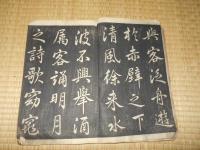 與客泛舟遊
於赤壁之下
清風徐来水
波不興舉酒
属客誦明月
之詩歌窈窕